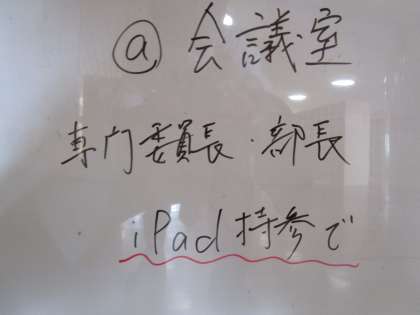 @ 会議室
専門委員長・部長
iPad持参で